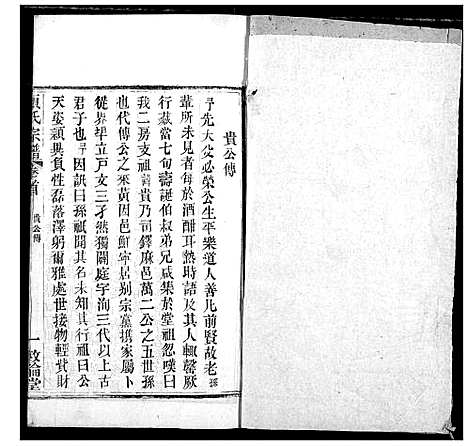 貴公傳
予先大父必榮公生平樂道人善凡前賢故老孫
輩所未見者每於酒酣耳熱時語及其人輒罄厥
行茲當七旬壽誕伯叔弟兄咸集於堂祖忽嘆曰
我二房支祖貴乃司鐸麻邑萬二公之五世孫
也代傳公之來黃因邑鮮寧居別宗黨携家屬卜
從界埠立戶女三孑然獨闢庭宇洵三代以上古
君子也予因訊曰孫祗聞其名未知其行祖曰公
天姿穎異負性磊落渾躬爾雅處世接物輕貲財
氏宗譜 卷首 貴公傳 一 敦倫堂